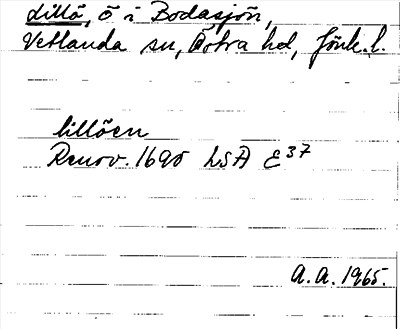 Lillö, ö i Bodasjön,
Vetlanda sn, Östra hd, Jönk. l.
lillöen
Renov. 1690 LSA E37
A.A. 1965.